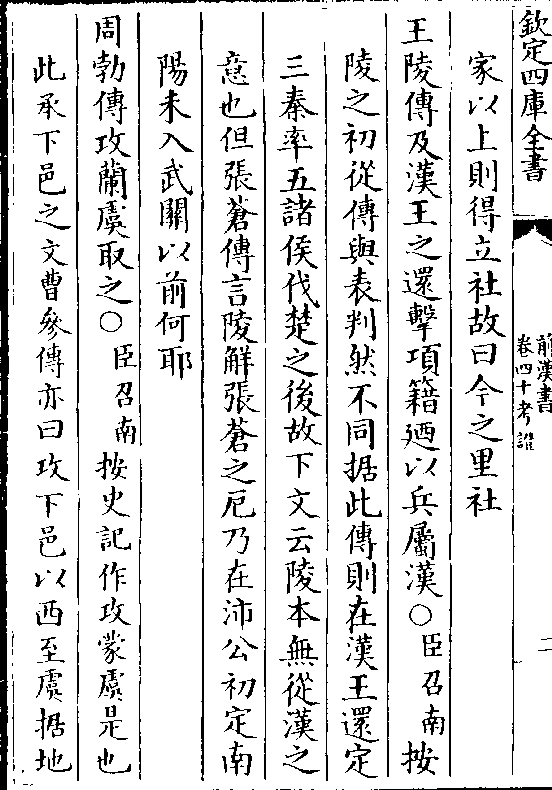 欽定四庫全書
前漢書
卷四十考證
二
家以上則得立社故曰今之里社
王陵傳及漢王之還擊項籍廼以兵屬漢○臣召南按
陵之初從傳與表判然不同据此傳則在漢王還定
三秦率五諸侯伐楚之後故下文云陵本無從漢之
意也但張蒼傳言陵解張蒼之厄乃在沛公初定南
陽未入武關以前何耶
周勃傳攻蘭虞取之○臣召南按史記作攻蒙虞是也
此承下邑之文曹參傳亦曰攻下邑以西至虞据地